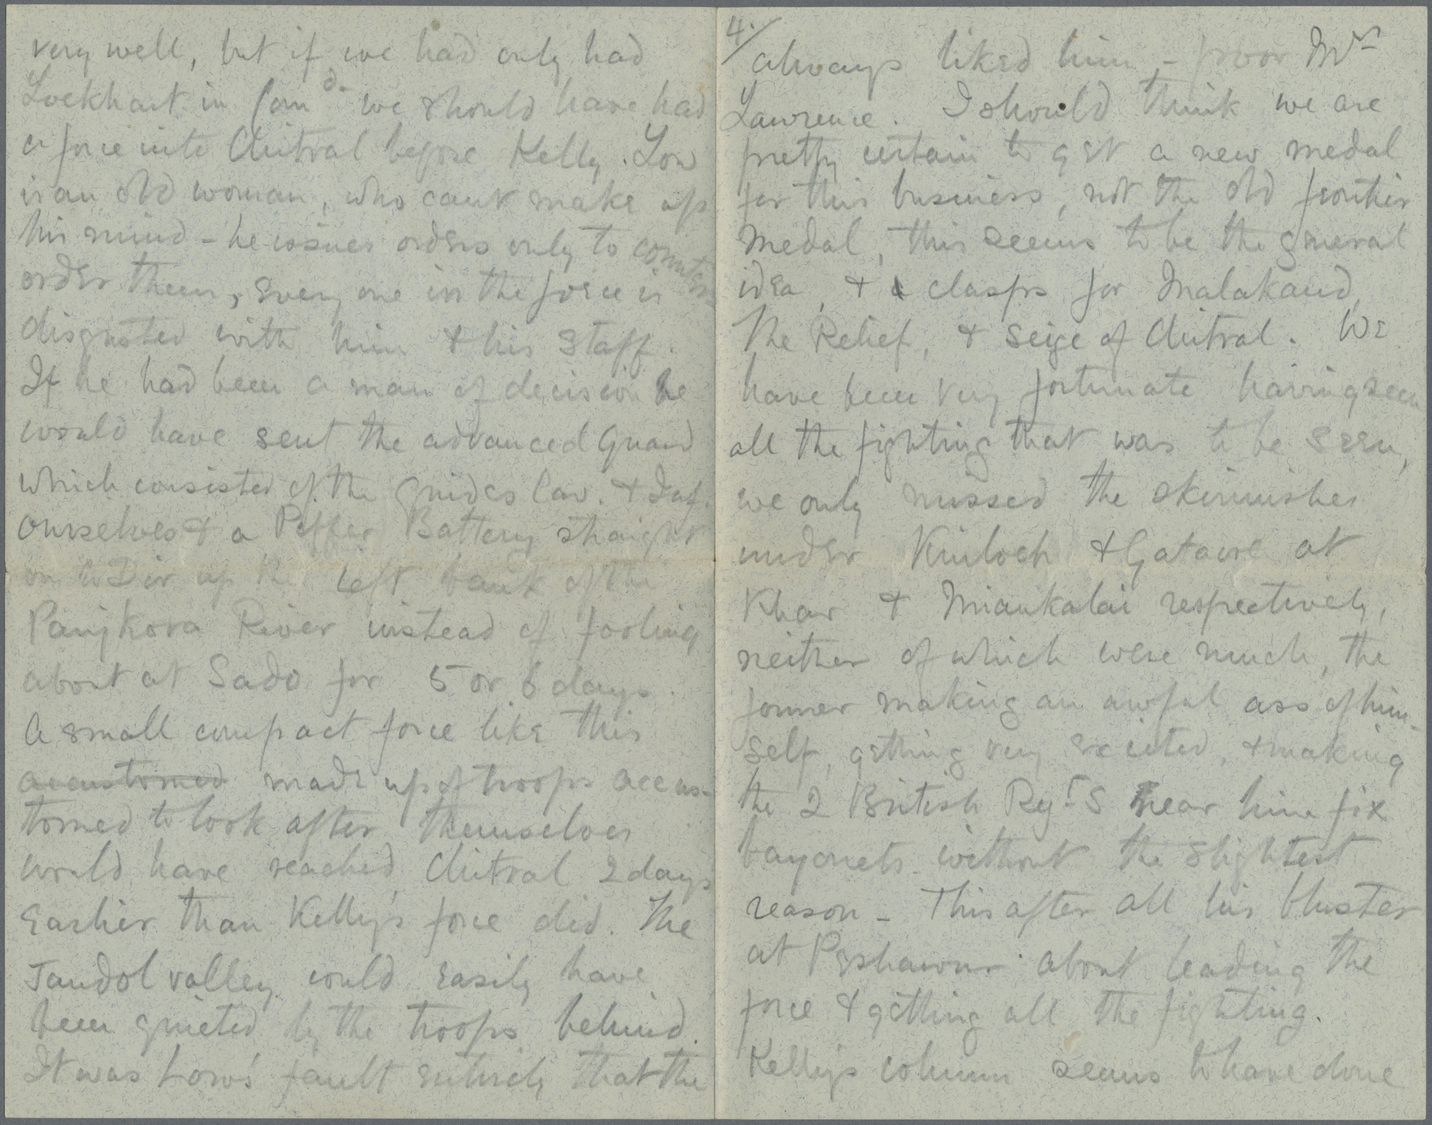 very well, but if we had only had
Lockhart in Comd. we should have had
a force into Chitral before Kelly. Low
is an old woman, who cant make up
his mind - he issues orders only to counter
order them, every one in the force is
disgusted with him & his staff.
If he had been a man of decision he
would have sent the advanced Guard
which consisted of the Guides Cav. & Inf.
ourselves & a Pepper Battery straight
on to Dir up the left bank of the
Panjkora River instead of fooling
about at Sado for 5 or 6 days.
A small compact force like this
accustomed made up of troops accus-
tomed to look after themselves
would have reached Chitral 2 days
earlier than Kelly's force did. The
Jandol valley could easily have
been quieted by the troops behind.
It was Low's fault entirely that the
4./
always liked him, - poor Mrs
Lawrence. I should think we are
pretty certain to get a new medal
for this business, not the old frontier
medal, this seems to be the general
idea, & clasps for Malakand,
The Relief, & Seige of Chitral. We
have been very fortunate having seen
all the fighting that was to be seen,
we only missed the skirmishes
under Kinloch & Gatacre at
Khar & Miankalai respectively,
neither of which were much, the
former making an awful ass of him-
self, getting very excited, & making
the 2 British Regts near him fix
bayonets without the slightest
reason - This after all his bluster
at Peshawur about leading the
force & getting all the fighting.
Kelly's column seems to have done